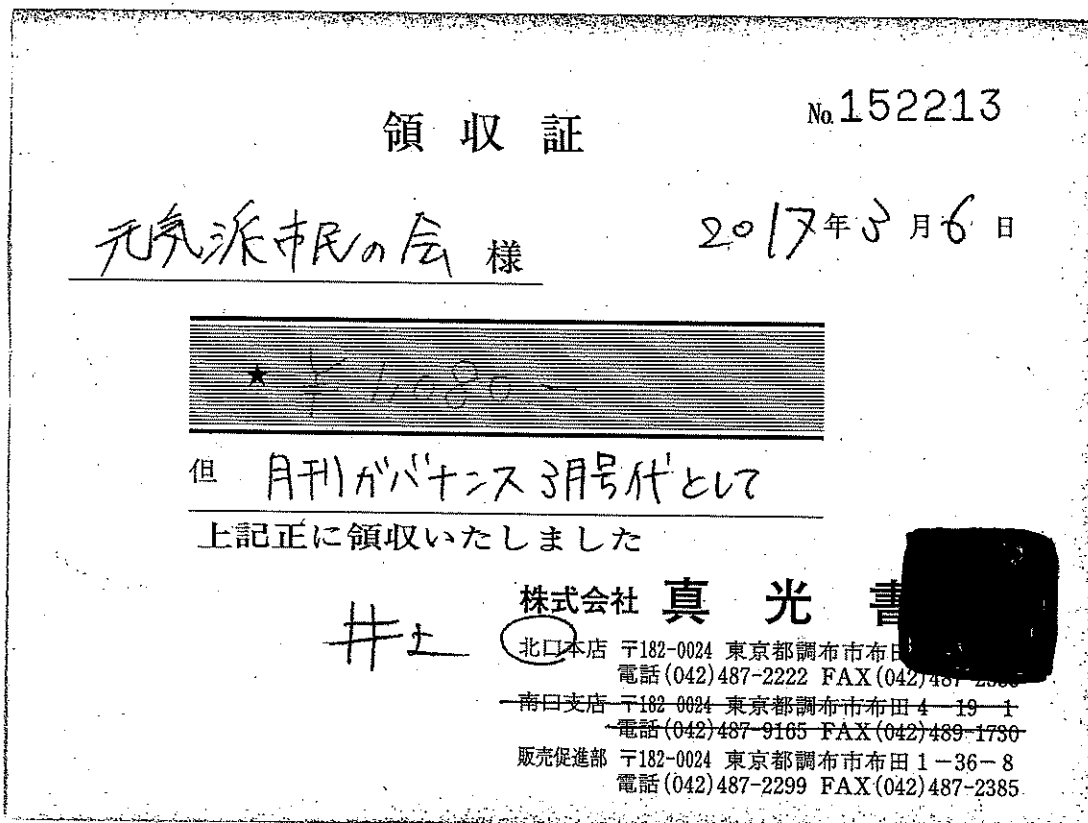 領収証
No.152213
元気派市民の会 様
2017年3月6日
★ ¥1080-
但 月刊ガバナンス3月号代として
上記正に領収いたしました
井上
株式会社 真光書
北口本店 〒182-0024 東京都調布市布田
電話(042)487-2222 FAX(042)487-2
南口支店 〒182-0024 東京都調布市布田4-19-1
電話(042)487-9165 FAX(042)489-1730
販売促進部 〒182-0024 東京都調布市布田1-36-8
電話(042)487-2299 FAX(042)487-2385